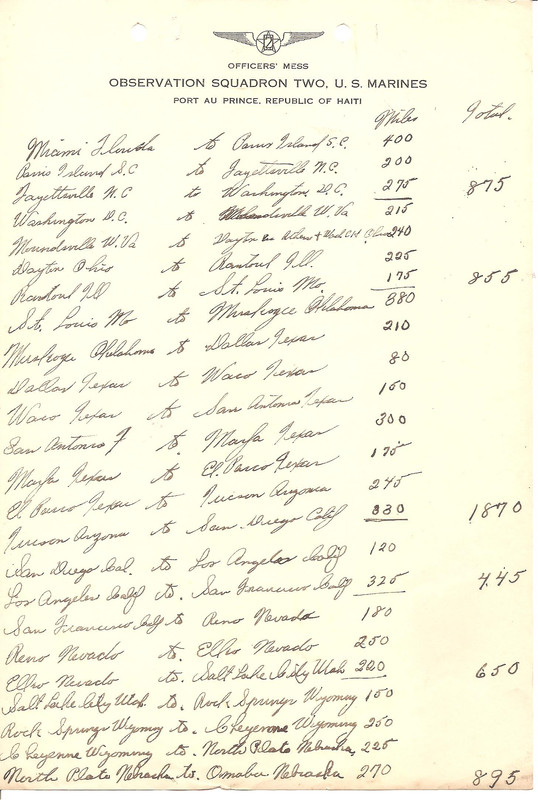 2
OFFICERS' MESS
OBSERVATION SQUADRON TWO, U. S. MARINES
PORT AU PRINCE, REPUBLIC OF HAITI
Miles Total.
Miami Florida to Paris Island S.C. 400
Paris Island S.C to Fayettsville N.C. 200
Fayettsville N.C to Washington D.C. 275 875
Washington D.C. to Moundsville W.Va 215
Moundsville W.Va to Dayton Athens + Wash C.H. 240
Dayton Ohio to Rantoul Ill. 225
Rantoul Ill to St. Louis Mo. 175 855
St. Louis Mo to Muskogee Oklahoma 380
Muskogee Oklahoma to Dallas Texas 210
Dallas Texas to Waco Texas 80
Waco Texas to San Antonio Texas 150
San Antonio T to. Marfa Texas 300
Marfa Texas to El. Passo Texas 175
El Passo Texas to Tucson Aryonia 245
Tucson Aryona to San. Diego Calif 330 1870
San Diego Cal. to Los Angeles Calif 120
Los Angeles Calif to. San Francisco Calif 325 445
San Francisco Calif to Reno Nevada 180
Reno Nevada to. Elko Nevada 250
Elko Nevada to. Salt Lake City Utah 220 650
Salt Lake City Utah. to. Rock Springs Wyomny 150
Rock Springs Wyomny to. Cheyenne Wyoming 250
Cheyenne Wyoming to. North Plato Nebraska, 225
North Plato Nebraska to. Omaha Nebraska 270 895